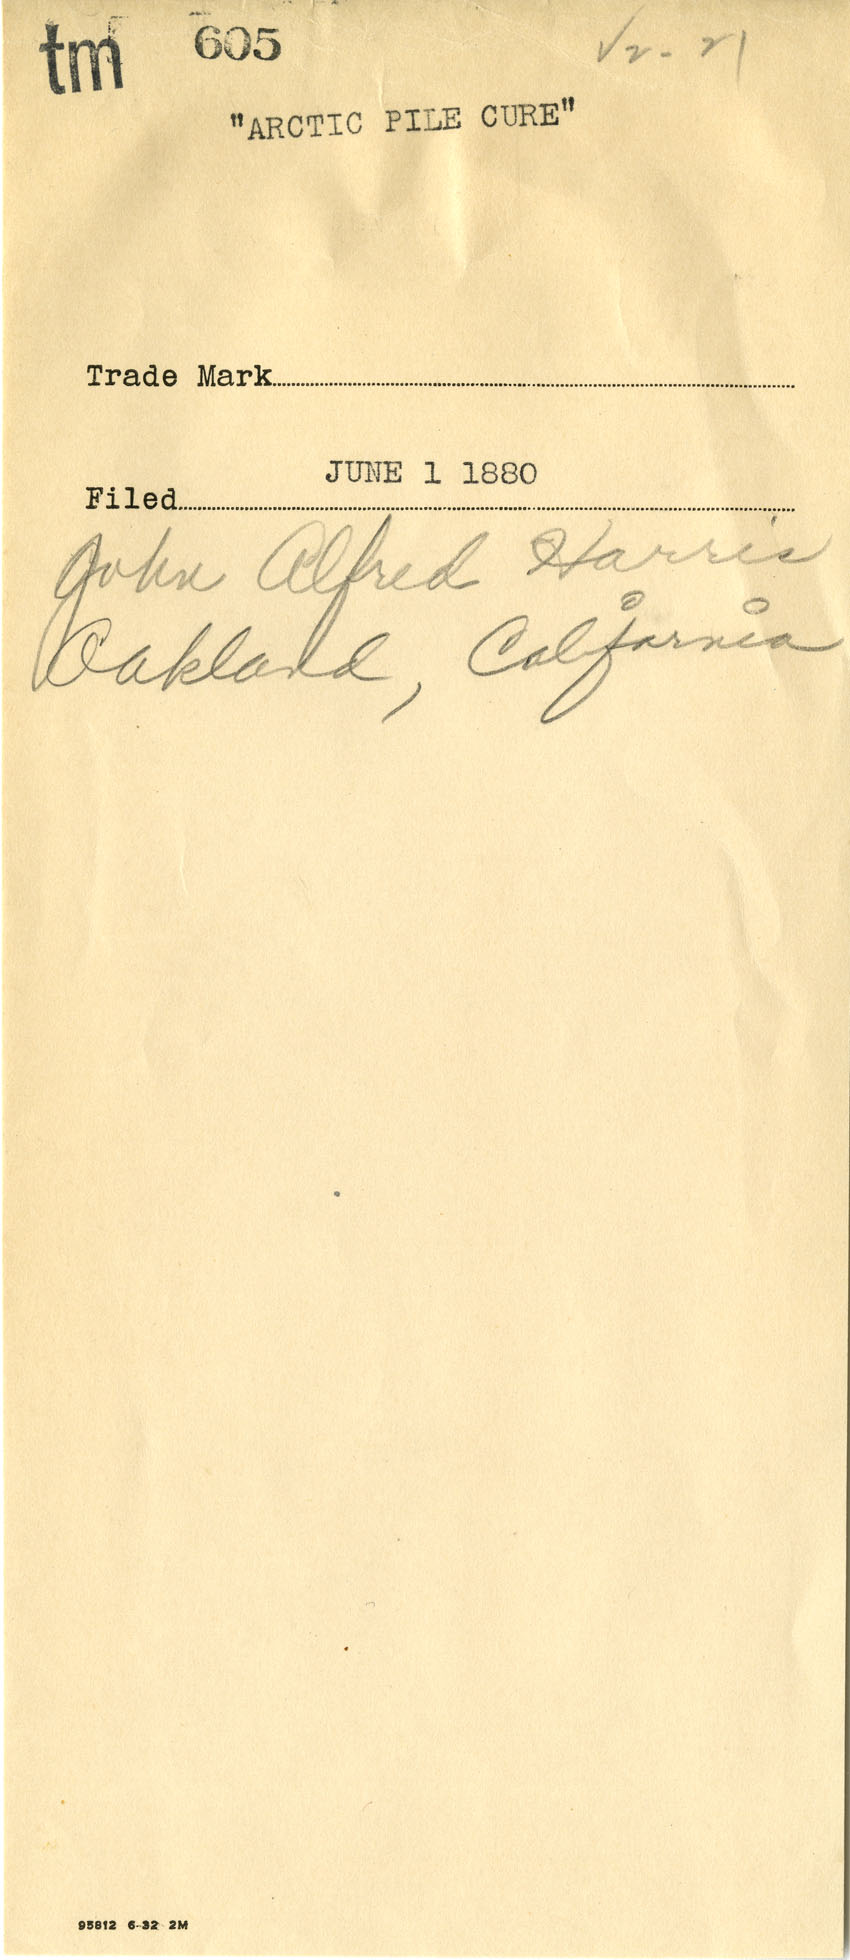 tm 605
"ARCTIC PILE CURE"
Trade Mark
JUNE 1 1880
Filed
John Alfred Harris
Oakland, California
95812 6-32 2M